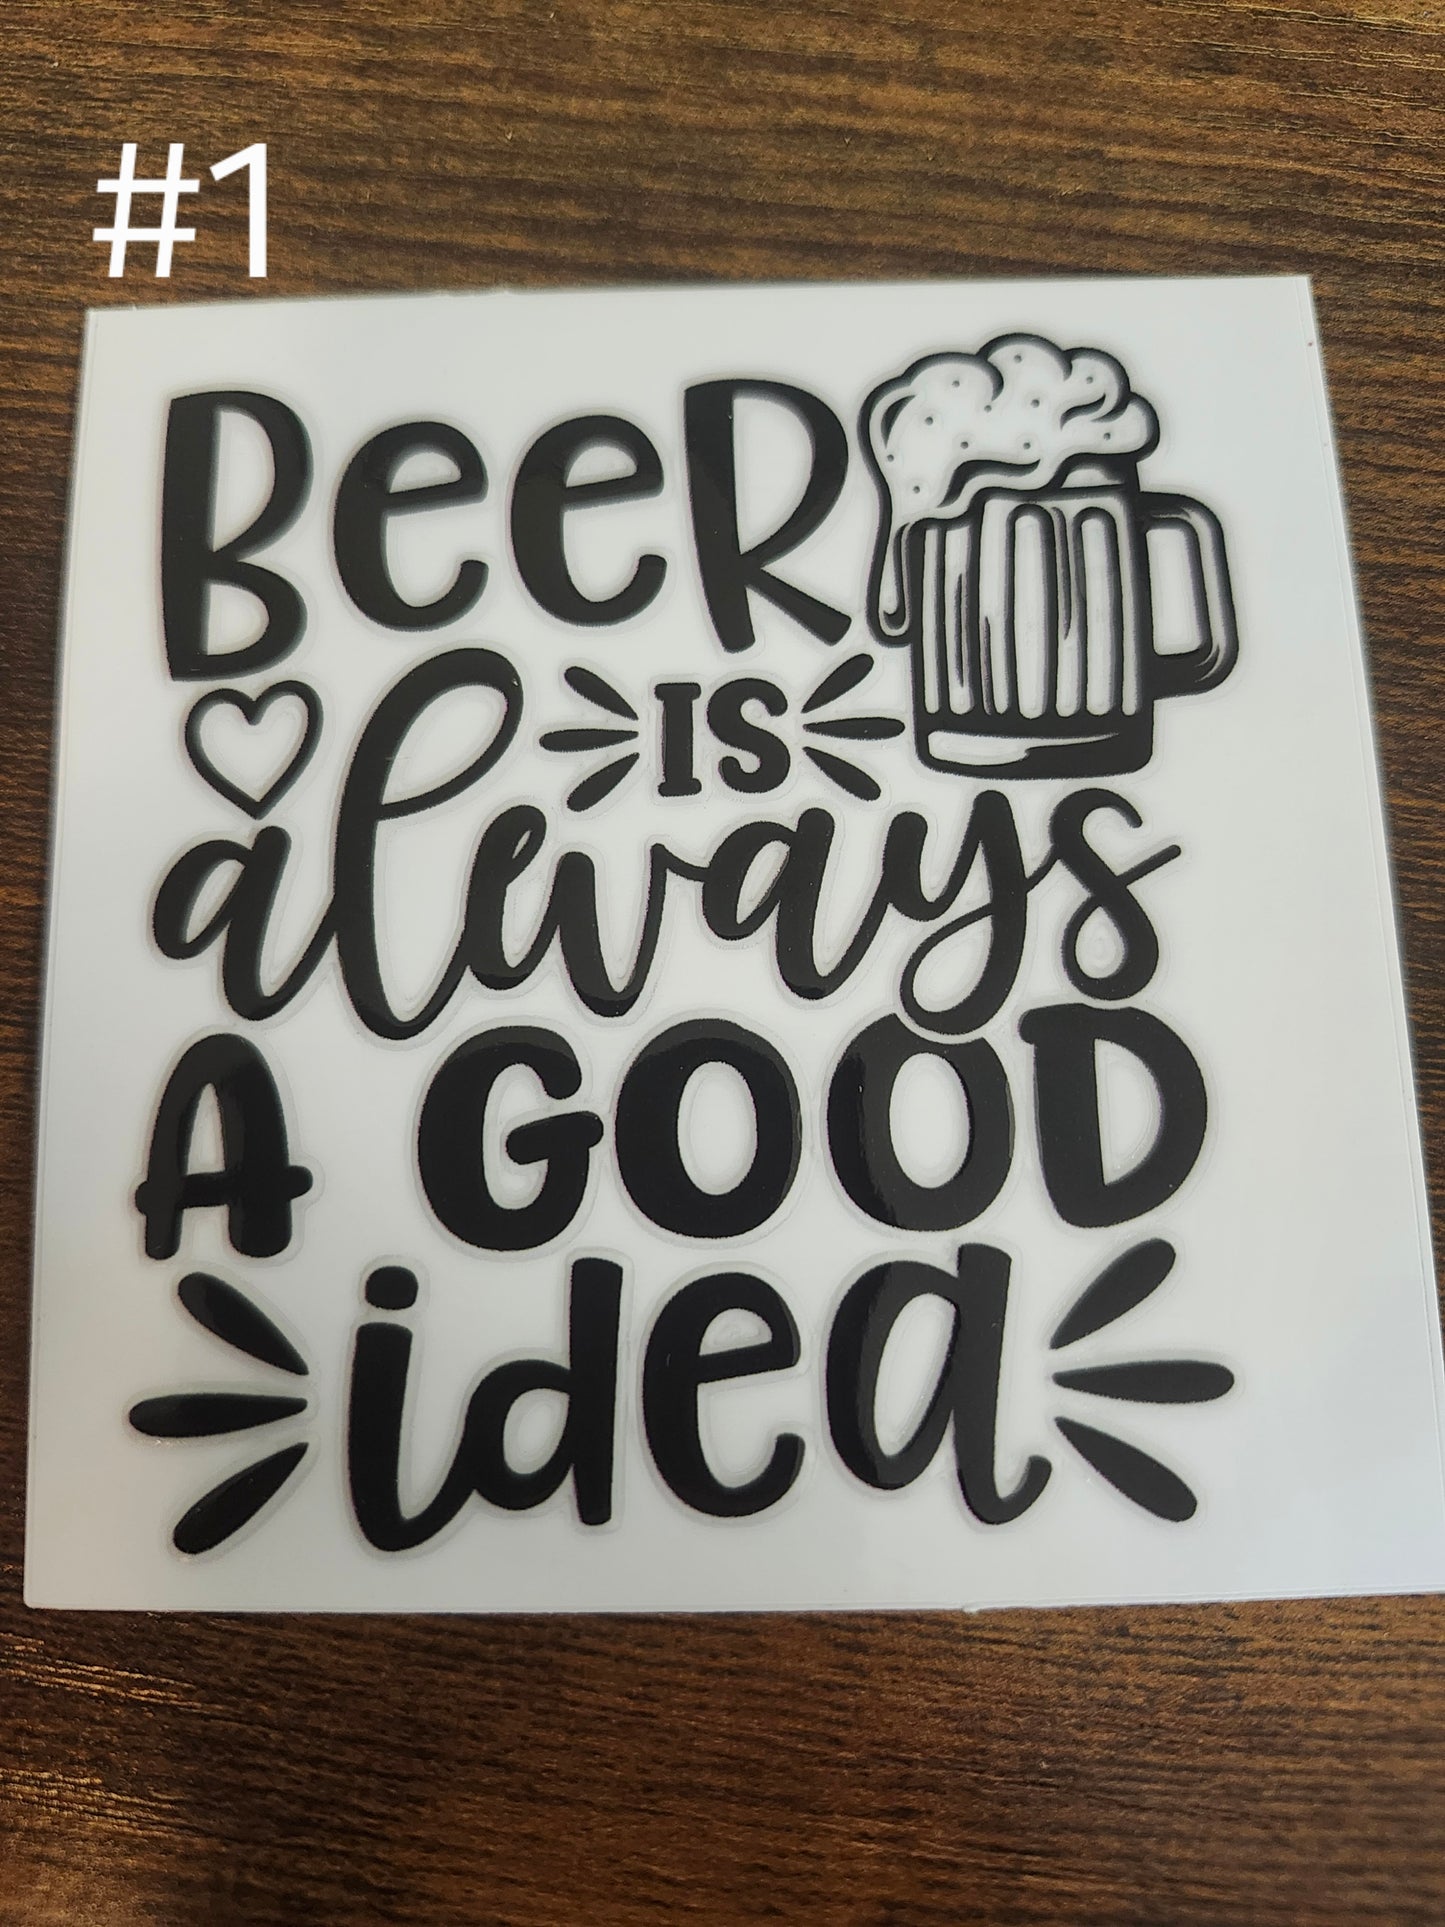 #1
Beer
IS
always
A GOOD
idea